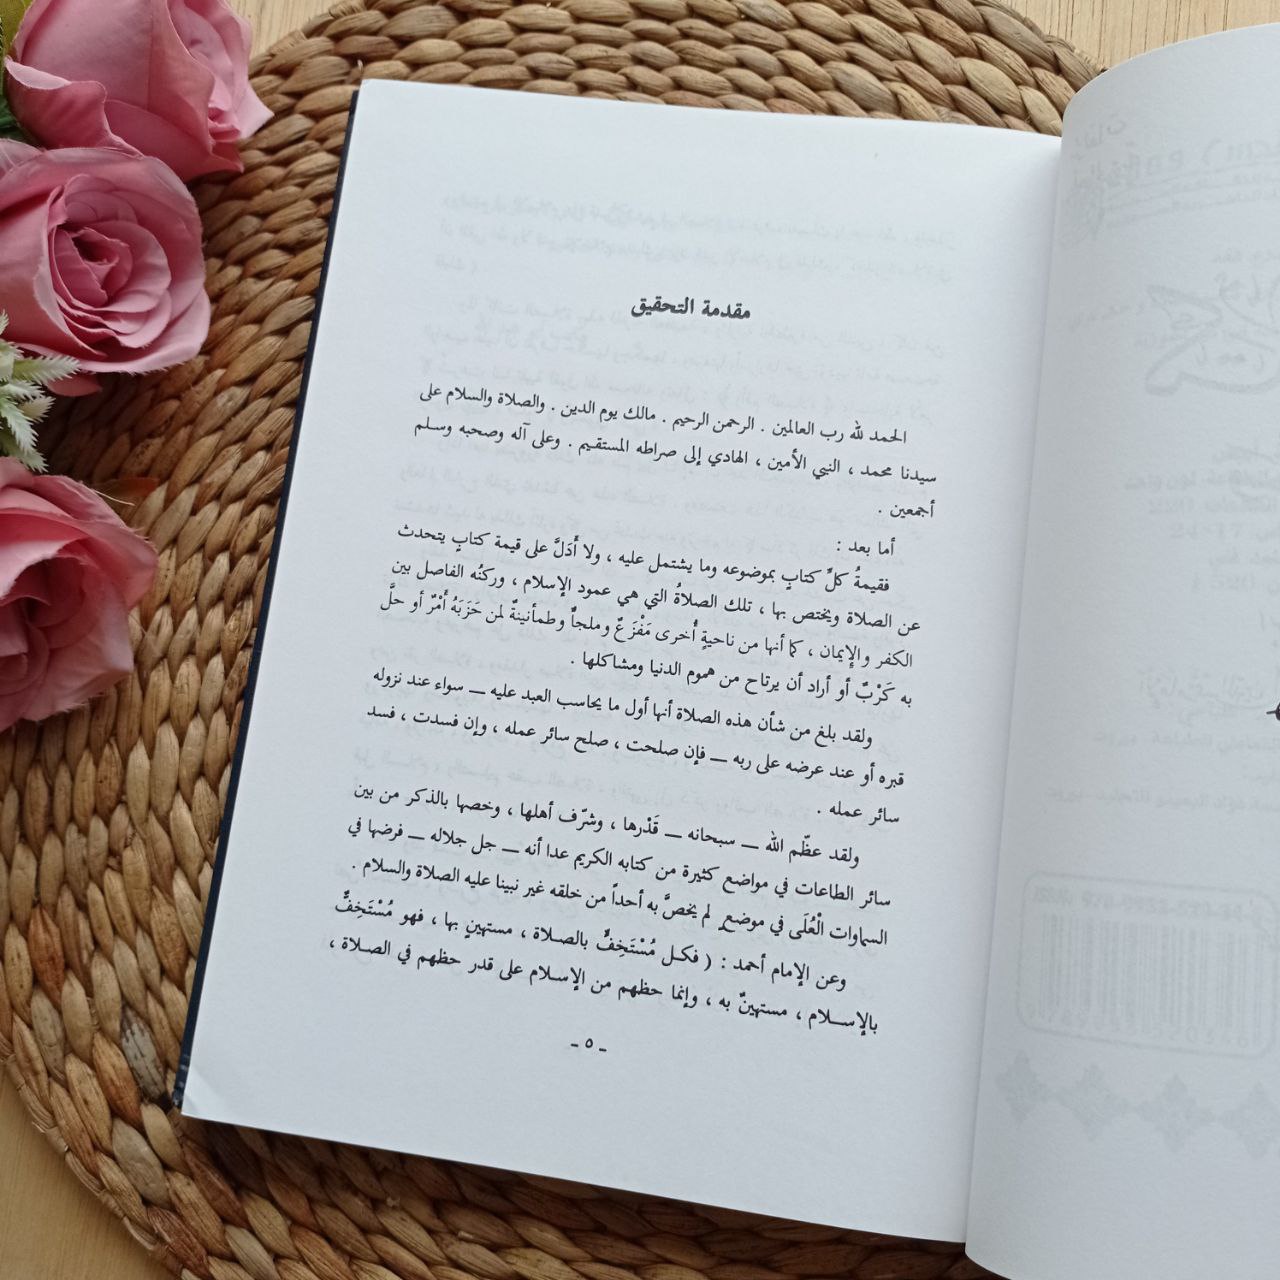 مقدمة التحقيق
الحمد لله رب العالمين . الرحمن الرحيم . مالك يوم الدين . والصلاة والسلام على
سيدنا محمد ، النبي الأمين ، الهادي إلى صراطه المستقيم . وعلى آله وصحبه وسلم
أجمعين .
أما بعد :
فقيمةُ كلِّ كتابٍ بموضوعه وما يشتمل عليه ، ولا أَدَلَّ على قيمة كتابٍ يتحدث
عن الصلاة ويختص بها ، تلك الصلاةُ التي هي عمود الإسلام ، وركنُه الفاصل بين
الكفر والإيمان ، كما أنها من ناحيةٍ أُخرى مَفْزَعٌ وملجأٌ وطمأنينةٌ لمن حَزَبَهُ أَمْرٌ أو حلَّ
به كَرْبٌ أو أراد أن يرتاح من هموم الدنيا ومشاكلها .
ولقد بلغ من شأن هذه الصلاة أنها أول ما يحاسب العبد عليه ــ سواء عند نزوله
قبره أو عند عرضه على ربه ــ فإن صلحت ، صلح سائر عمله ، وإن فسدت ، فسد
سائر عمله .
ولقد عظّم الله ــ سبحانه ــ قَدْرها ، وشرّف أهلها ، وخصها بالذكر من بين
سائر الطاعات في مواضع كثيرة من كتابه الكريم عدا أنه ــ جل جلاله ــ فرضها في
السماوات الْعُلَى في موضعٍ لم يخصَّ به أحداً من خلقه غير نبينا عليه الصلاة والسلام .
وعن الإمام أحمد : ( فكل مُسْتَخِفٍّ بالصلاة ، مستهينٍ بها ، فهو مُسْتَخِفٌّ
بالإسلام ، مستهينٌ به ، وإنما حظهم من الإسلام على قدر حظهم في الصلاة ،
ـ ٥ ـ